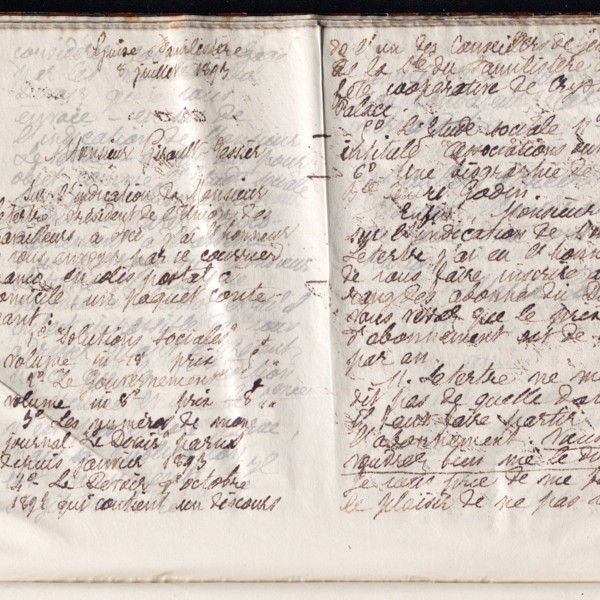 Guise Familistère
8 juillet 1893
Monsieur Tessier
Sur l'indication de Monsieur
Letertre Président de l'Union des
travailleurs à j'ai l'honneur
vous envoyer par ce courrier
franco en colis postal à
domicile un paquet conte-
nant:
1o Solutions sociales
volume in 18 prix 5f
2o Le Gouvernement
volume in 8o prix 8f
3o Les numéros de mon
journal Le Devoir parus
depuis janvier 1893
4o Le Devoir d'octobre
1892 qui contient un discours
de l'un des Conseillers de
de la Sté du Familistère
fête coopérative de
Palace.
5o L'étude sociale no
intitulé Associations
6o Une biographie de
Godin.
Enfin, Monsieur
sur l'indication de
Letertre j'ai eu l'honn
de vous faire inscrire
rang des abonnés du D
vous que le prix
d'abonnement est de
par an.
M. Letertre ne m
dit pas de quelle dat
il faut faire partir
l'abonnement. Vous
voudrez bien me le di
Je vous prie de me
le plaisir de ne pas